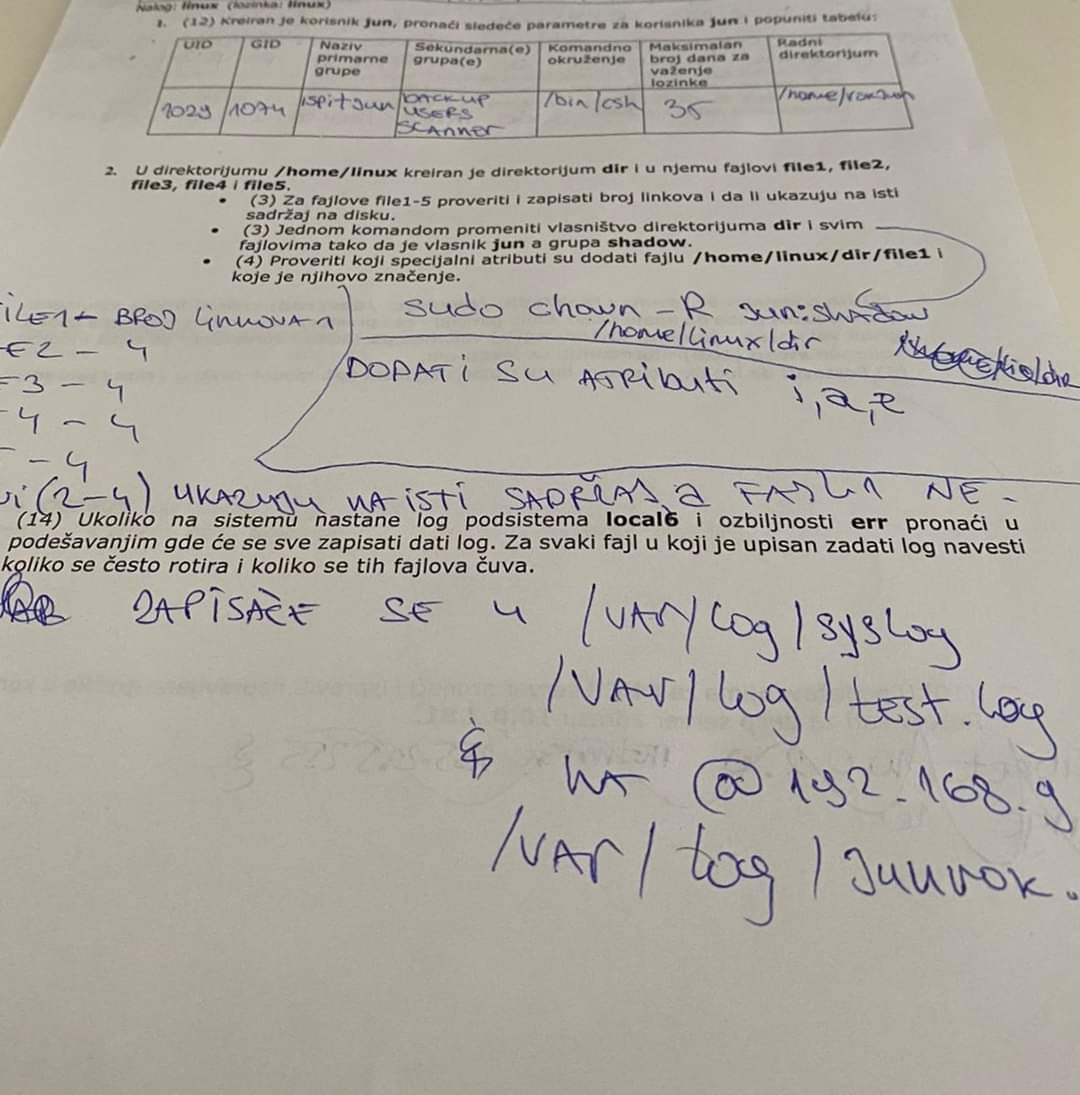 Nalog: linux (lozinka: linux)
1. (12) Kreiran je korisnik jun, pronaći sledeće parametre za korisnika jun i popuniti tabelu:
UID GID Naziv primarne grupe Sekundarna(e) grupa(e) Komandno okruženje Maksimalan broj dana za važenje lozinke Radni direktorijum
1029 1074 ispitjun BACKUP USERS SCANNER /bin/csh 35 /home/
2. U direktorijumu /home/linux kreiran je direktorijum dir i u njemu fajlovi file1, file2,
file3, file4 i file5.
• (3) Za fajlove file1-5 proveriti i zapisati broj linkova i da li ukazuju na isti
sadržaj na disku.
• (3) Jednom komandom promeniti vlasništvo direktorijuma dir i svim
fajlovima tako da je vlasnik jun a grupa shadow.
• (4) Proveriti koji specijalni atributi su dodati fajlu /home/linux/dir/file1 i
koje je njihovo značenje.
ILE1 - BROJ LINKOVA 1
E2 - 4
3 - 4
4 - 4
- 4
sudo chown -R jun:shadow
/home/linux/dir
DODATI SU ATRibuti i,a,e
(2-4) UKAZUJU NA ISTI SADRŽAJ a FAJL 1 NE.
(14) Ukoliko na sistemu nastane log podsistema local6 i ozbiljnosti err pronaći u
podešavanjim gde će se sve zapisati dati log. Za svaki fajl u koji je upisan zadati log navesti
koliko se često rotira i koliko se tih fajlova čuva.
ZAPISAĆE SE u /VAR/log/syslog
/VAR/log/test.log
NA @192.168.9
/VAR/log/junrok.